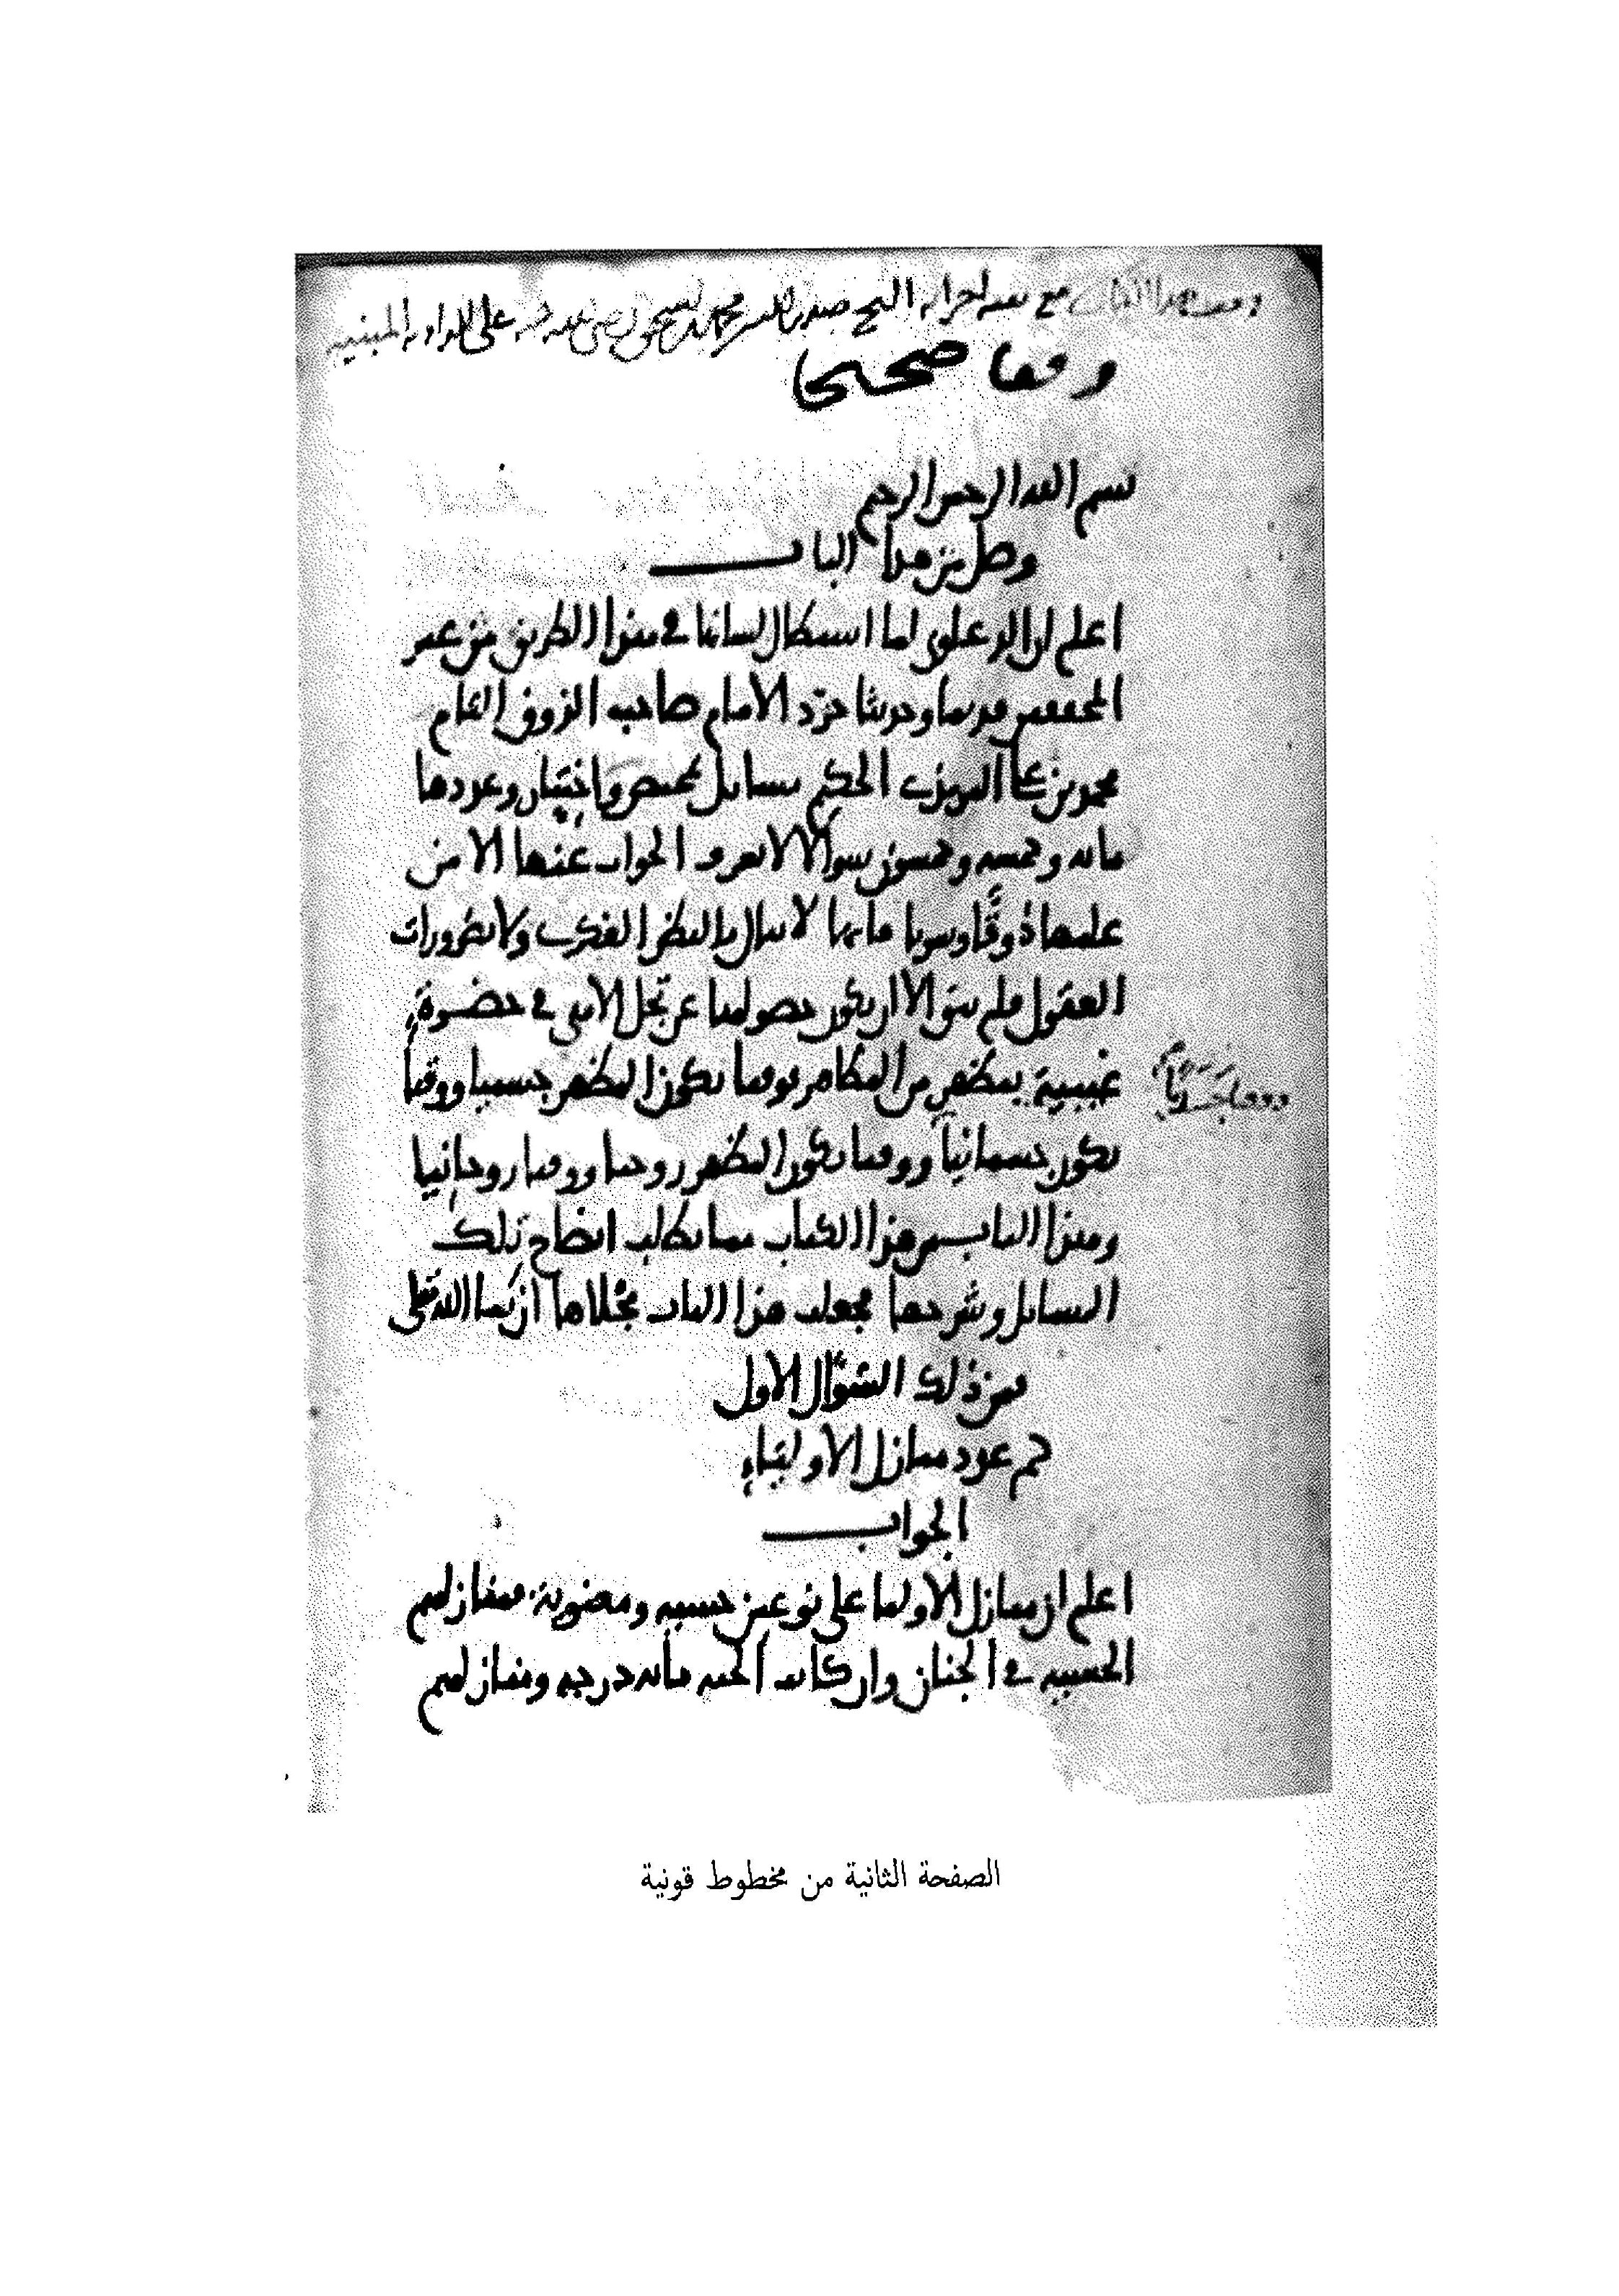 وقف هذا الكتاب مع بقية اجزائه الشيخ صدر الدين محمد بن اسحق رضي الله عنه على الزاوية المبنية
وقفا صحيحا
بسم الله الرحمن الرحيم
وصل من هذا الباب
اعلم ان المدعين لما استطال لسانها في هذا الطريق من غير
المحققين قديما وحديثا جرّد الامام صاحب الذوق التام
محمد بن علي الترمذي الحكيم مسايل تمحيص واختبار وعددها
مائه وخمسه وخمسون سوالا لا يعرف الجواب عنها الا من
علمها ذوقًا وشربا فانها لا تنال بالنظر الفكري ولا بضرورات
العقول فلم يبق الا ان يكون حصولها عن تجل الاهي في حضرة
غيبية بمظهر من المظاهر فوقتا يكون المظهر جسميا ووقتا
يكون جسمانيا ووقتا يكون المظهر روحيا ووقتا روحانيا
وهذا الباب من هذا الكتاب مما يطلب ايضاح تلك
المسايل وشرحها فجعلت هذا الباب مجلاها ان شا الله تعلى
فمن ذلك السؤال الاول
كم عدد منازل الاولياء
الجواب
اعلم ان منازل الاوليا على نوعين حسيه ومعنوية فمنازلهم
الحسيه في الجنان وان كانت الجنه مائه درجه ومنازلهم
الصفحة الثانية من مخطوط قونية